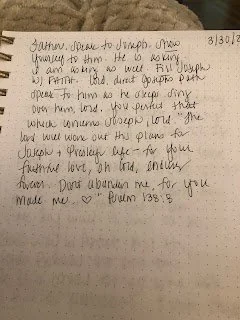 3/30/2
Father, speak to Joseph. Show
yourself to him. He is asking.
I am asking as well. Fill Joseph
w/ FAITH. Lord, direct Joseph's path
speak to him as he sleeps. Sing
over him, Lord. You perfect that
which concerns Joseph, Lord. "The
Lord will work out His plans for
Joseph + Presley life - for your
faithful love, oh Lord, endures
forever. Don't abandon me, for you
made me. ♡" Psalm 138:8